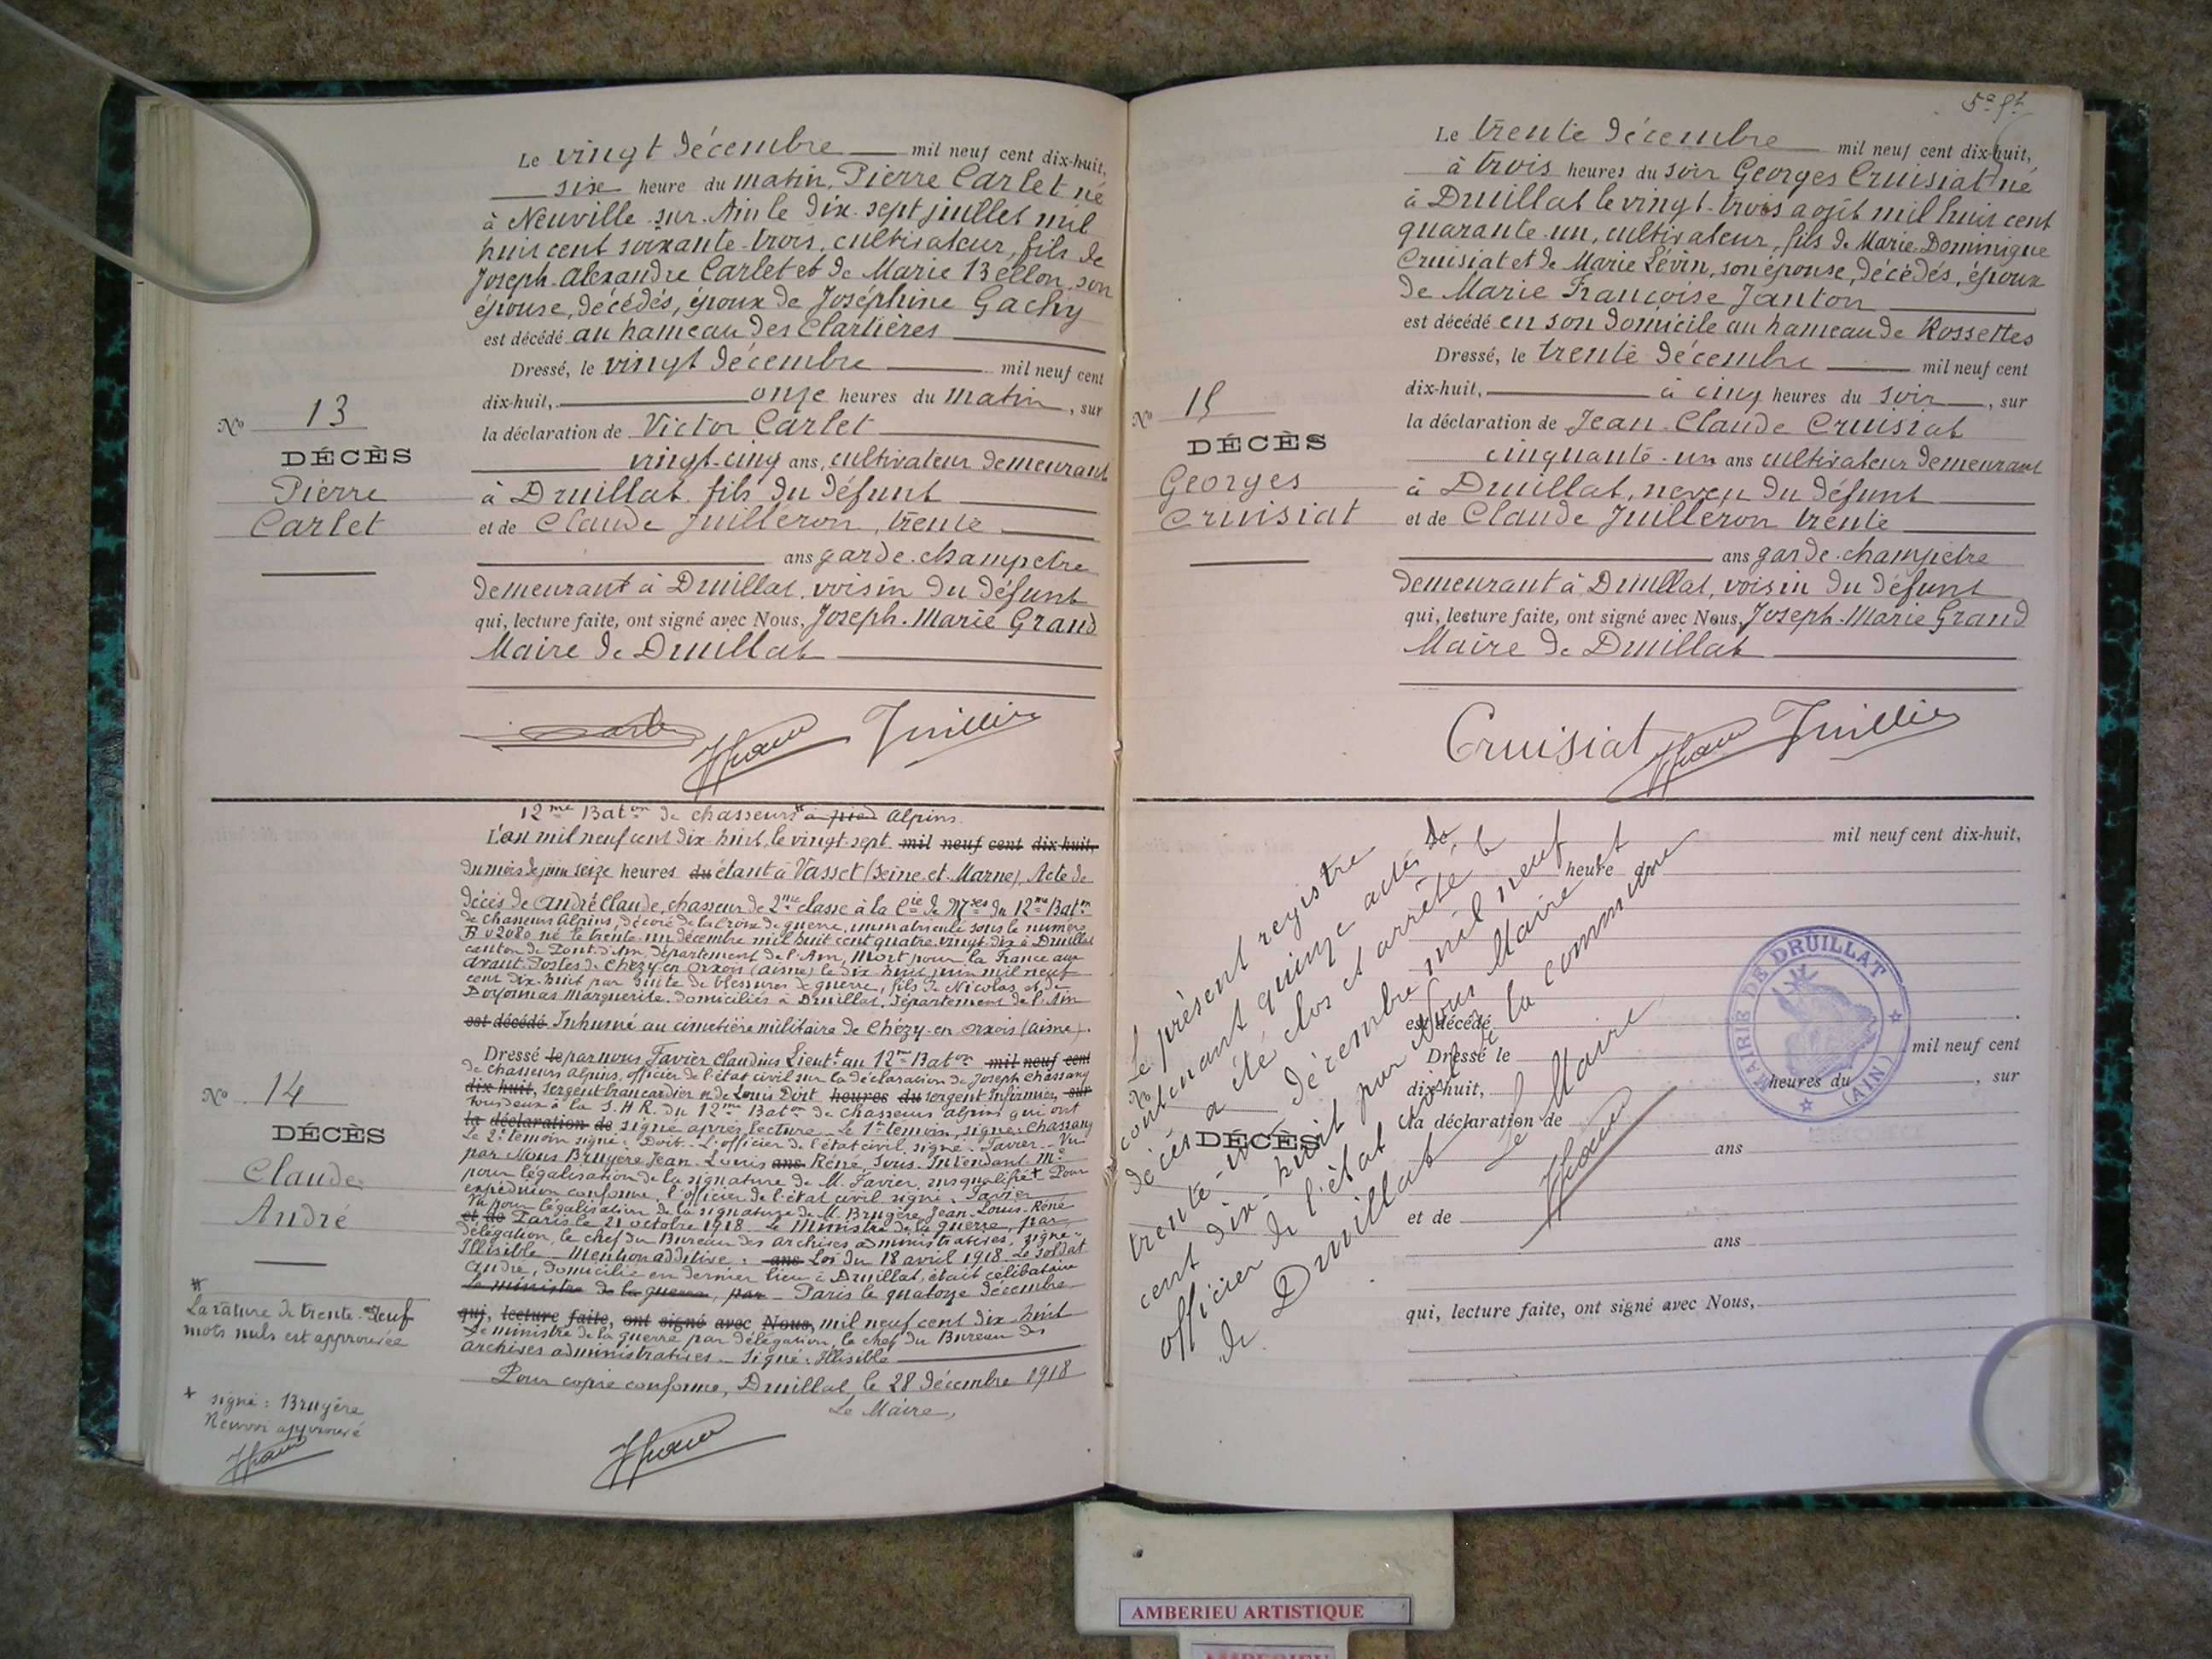 Le vingt décembre mil neuf cent dix-huit,
six heure du matin, Pierre Carlet né
à Neuville-sur-Ain le dix-sept juillet mil
huit cent soixante-trois, cultivateur, fils de
Joseph-Alexandre Carlet et de Marie Bellon, son
épouse, décédés, époux de Joséphine Gachy
est décédé au hameau des Carlières
Dressé, le vingt décembre mil neuf cent
dix-huit, onze heures du matin, sur
la déclaration de Victor Carlet
vingt-cinq ans, cultivateur demeurant
à Druillat fils du défunt
et de Claude Juilléron, trente
ans garde-champetre
demeurant à Druillat, voisin du défunt
qui, lecture faite, ont signé avec Nous, Joseph-Marie Grand
Maire de Druillat
No 13
DÉCÈS
Pierre
Carlet
12me Baton de chasseurs à pied Alpins.
L'an mil neuf cent dix-huit, le vingt-sept mil neuf cent dix-huit,
du mois de juin seize heures du étant à Vasset (Seine-et-Marne), Acte de
décès de André Claude, chasseur de 2me classe à la Cie de Mses du 12me Baton
de chasseurs Alpins, décoré de la Croix de guerre, immatriculé sous le numéro
né le trente-un décembre mil huit cent quatre-vingt-dix à Druillat
canton de Pont-d'Ain, département de l'Ain, Mort pour la France aux
avant-postes de Chézy-en-Orxois (Aisne) le dix-huit juin mil neuf
cent dix-huit par suite de blessures de guerre, fils de Nicolas et de
Marguerite, domiciliés à Druillat, département de l'Ain
est décédé Inhumé au cimetière militaire de Chézy-en-Orxois (Aisne).
Dressé le par nous Favier Claudius Lieutt au 12me Baton mil neuf cent
de chasseurs Alpins, officier de l'état civil sur la déclaration de Joseph Chassang
dix-huit, sergent brancardier et de Louis Doit heures du sergent Infirmier, sur
tous deux à la S.H.R. du 12me Baton de chasseurs alpins qui ont
la déclaration de signé après lecture. Le 1er témoin, signé: Chassang
Le 2e témoin signé: Doit. L'officier de l'état civil, signé: Favier. Vu
par Nous Bruyère Jean-Louis ans Réné, Sous-Intendant Mre
pour légalisation de la signature de M. Favier, susqualifié + Pour
expédition conforme, l'officier de l'état civil signé: Favier
Vu pour légalisation de la signature de M. Bruyère Jean-Louis-Réné
et de Paris le 21 octobre 1918. Le Ministre de la guerre, par
délégation, le chef du Bureau des archives administratives, signé:
Illisible. Mention additive: ans Loi du 18 avril 1918. Le soldat
André, domicilié en dernier lieu à Druillat, était célibataire
Le ministre de la guerre, par Paris le quatorze décembre
qui, lecture faite, ont signé avec Nous, mil neuf cent dix-huit
Le ministre de la guerre par délégation, le chef du Bureau des
archives administratives. Signé: Illisible
Pour copie conforme, Druillat, le 28 décembre 1918
Le Maire,
No 14
DÉCÈS
Claude
André
La rature de trente-neuf
mots nuls est approuvée
+ signé: Bruyère
Renvoi approuvé
Le trente décembre mil neuf cent dix-huit,
à trois heures du soir Georges Cruisiat né
à Druillat le vingt-trois août mil huit cent
quarante-un, cultivateur, fils de Marie-Dominique
Cruisiat et de Marie Levin, son épouse, décédés, époux
de Marie Françoise Janton
est décédé en son domicile au hameau de Rossettes
Dressé, le trente décembre mil neuf cent
dix-huit, à cinq heures du soir, sur
la déclaration de Jean-Claude Cruisiat
cinquante-un ans cultivateur demeurant
à Druillat, neveu du défunt
et de Claude Juilléron trente
ans garde-champetre
demeurant à Druillat, voisin du défunt
qui, lecture faite, ont signé avec Nous, Joseph-Marie Grand
Maire de Druillat
Cruisiat
No 15
DÉCÈS
Georges
Cruisiat
mil neuf cent dix-huit,
heure du
est décédé
Dressé le mil neuf cent
dix-huit, heures du , sur
la déclaration de
ans
et de
ans
qui, lecture faite, ont signé avec Nous,
No
DÉCÈS
Le présent registre
contenant quinze actes de
décès a été clos et arrêté le
trente-un décembre mil neuf
cent dix-huit par Nous Maire et
officier de l'état civil de la commune
de Druillat
Le Maire
MAIRIE DE DRUILLAT
(AIN)
AMBERIEU ARTISTIQUE
AMBERIEU